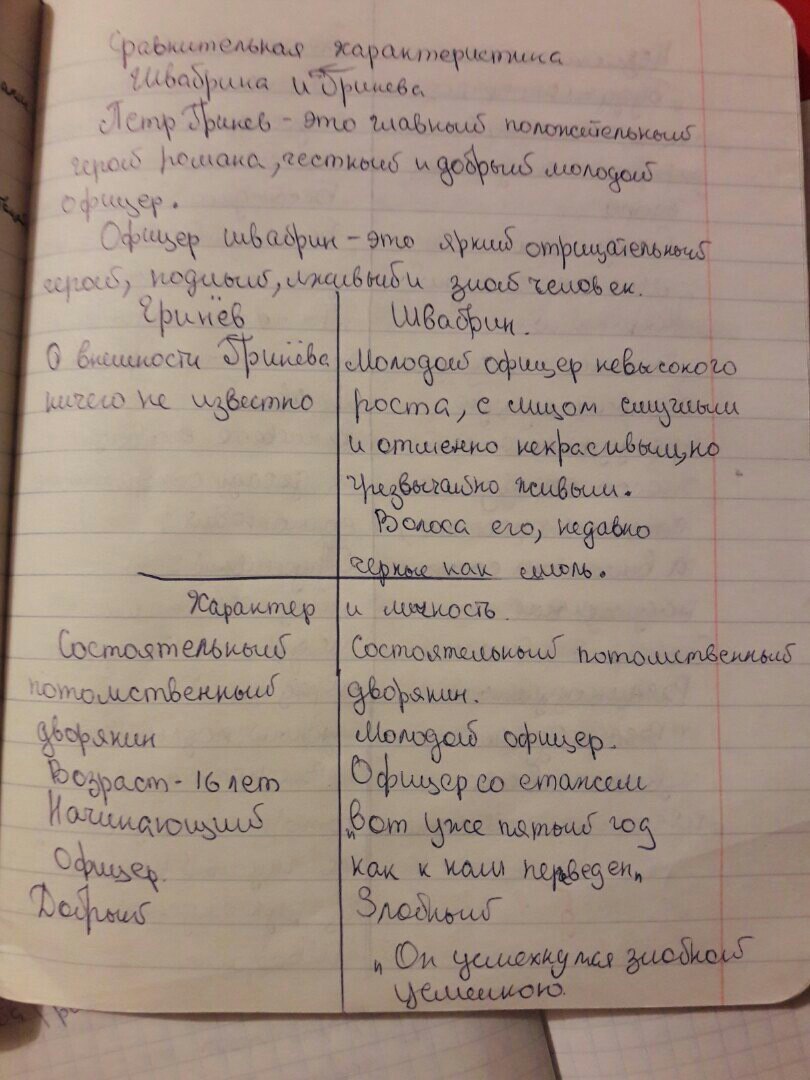 Сравнительная характеристика
Швабрина и Гринева
Пётр Гринев - это главный положительный
герой романа, честный и добрый молодой
офицер.
Офицер швабрин - это яркий отрицательный
герой, подлый, лживый и злой человек.
Гринёв
О внешности Гринёва
ничего не известно
Швабрин.
Молодой офицер невысокого
роста, с лицом смуглым
и отменно некрасивым, но
чрезвычайно живым.
Волоса его, недавно
черные как смоль.
Характер и личность.
Состоятельный
потомственный
дворянин
Возраст - 16 лет
Начинающий
Офицер.
Добрый
Состоятельный потомственный
дворянин.
Молодой офицер.
Офицер со стажем
"Вот уже пятый год
как к нам переведен"
Злобный
"Он усмехнулся злобной
усмешкою.